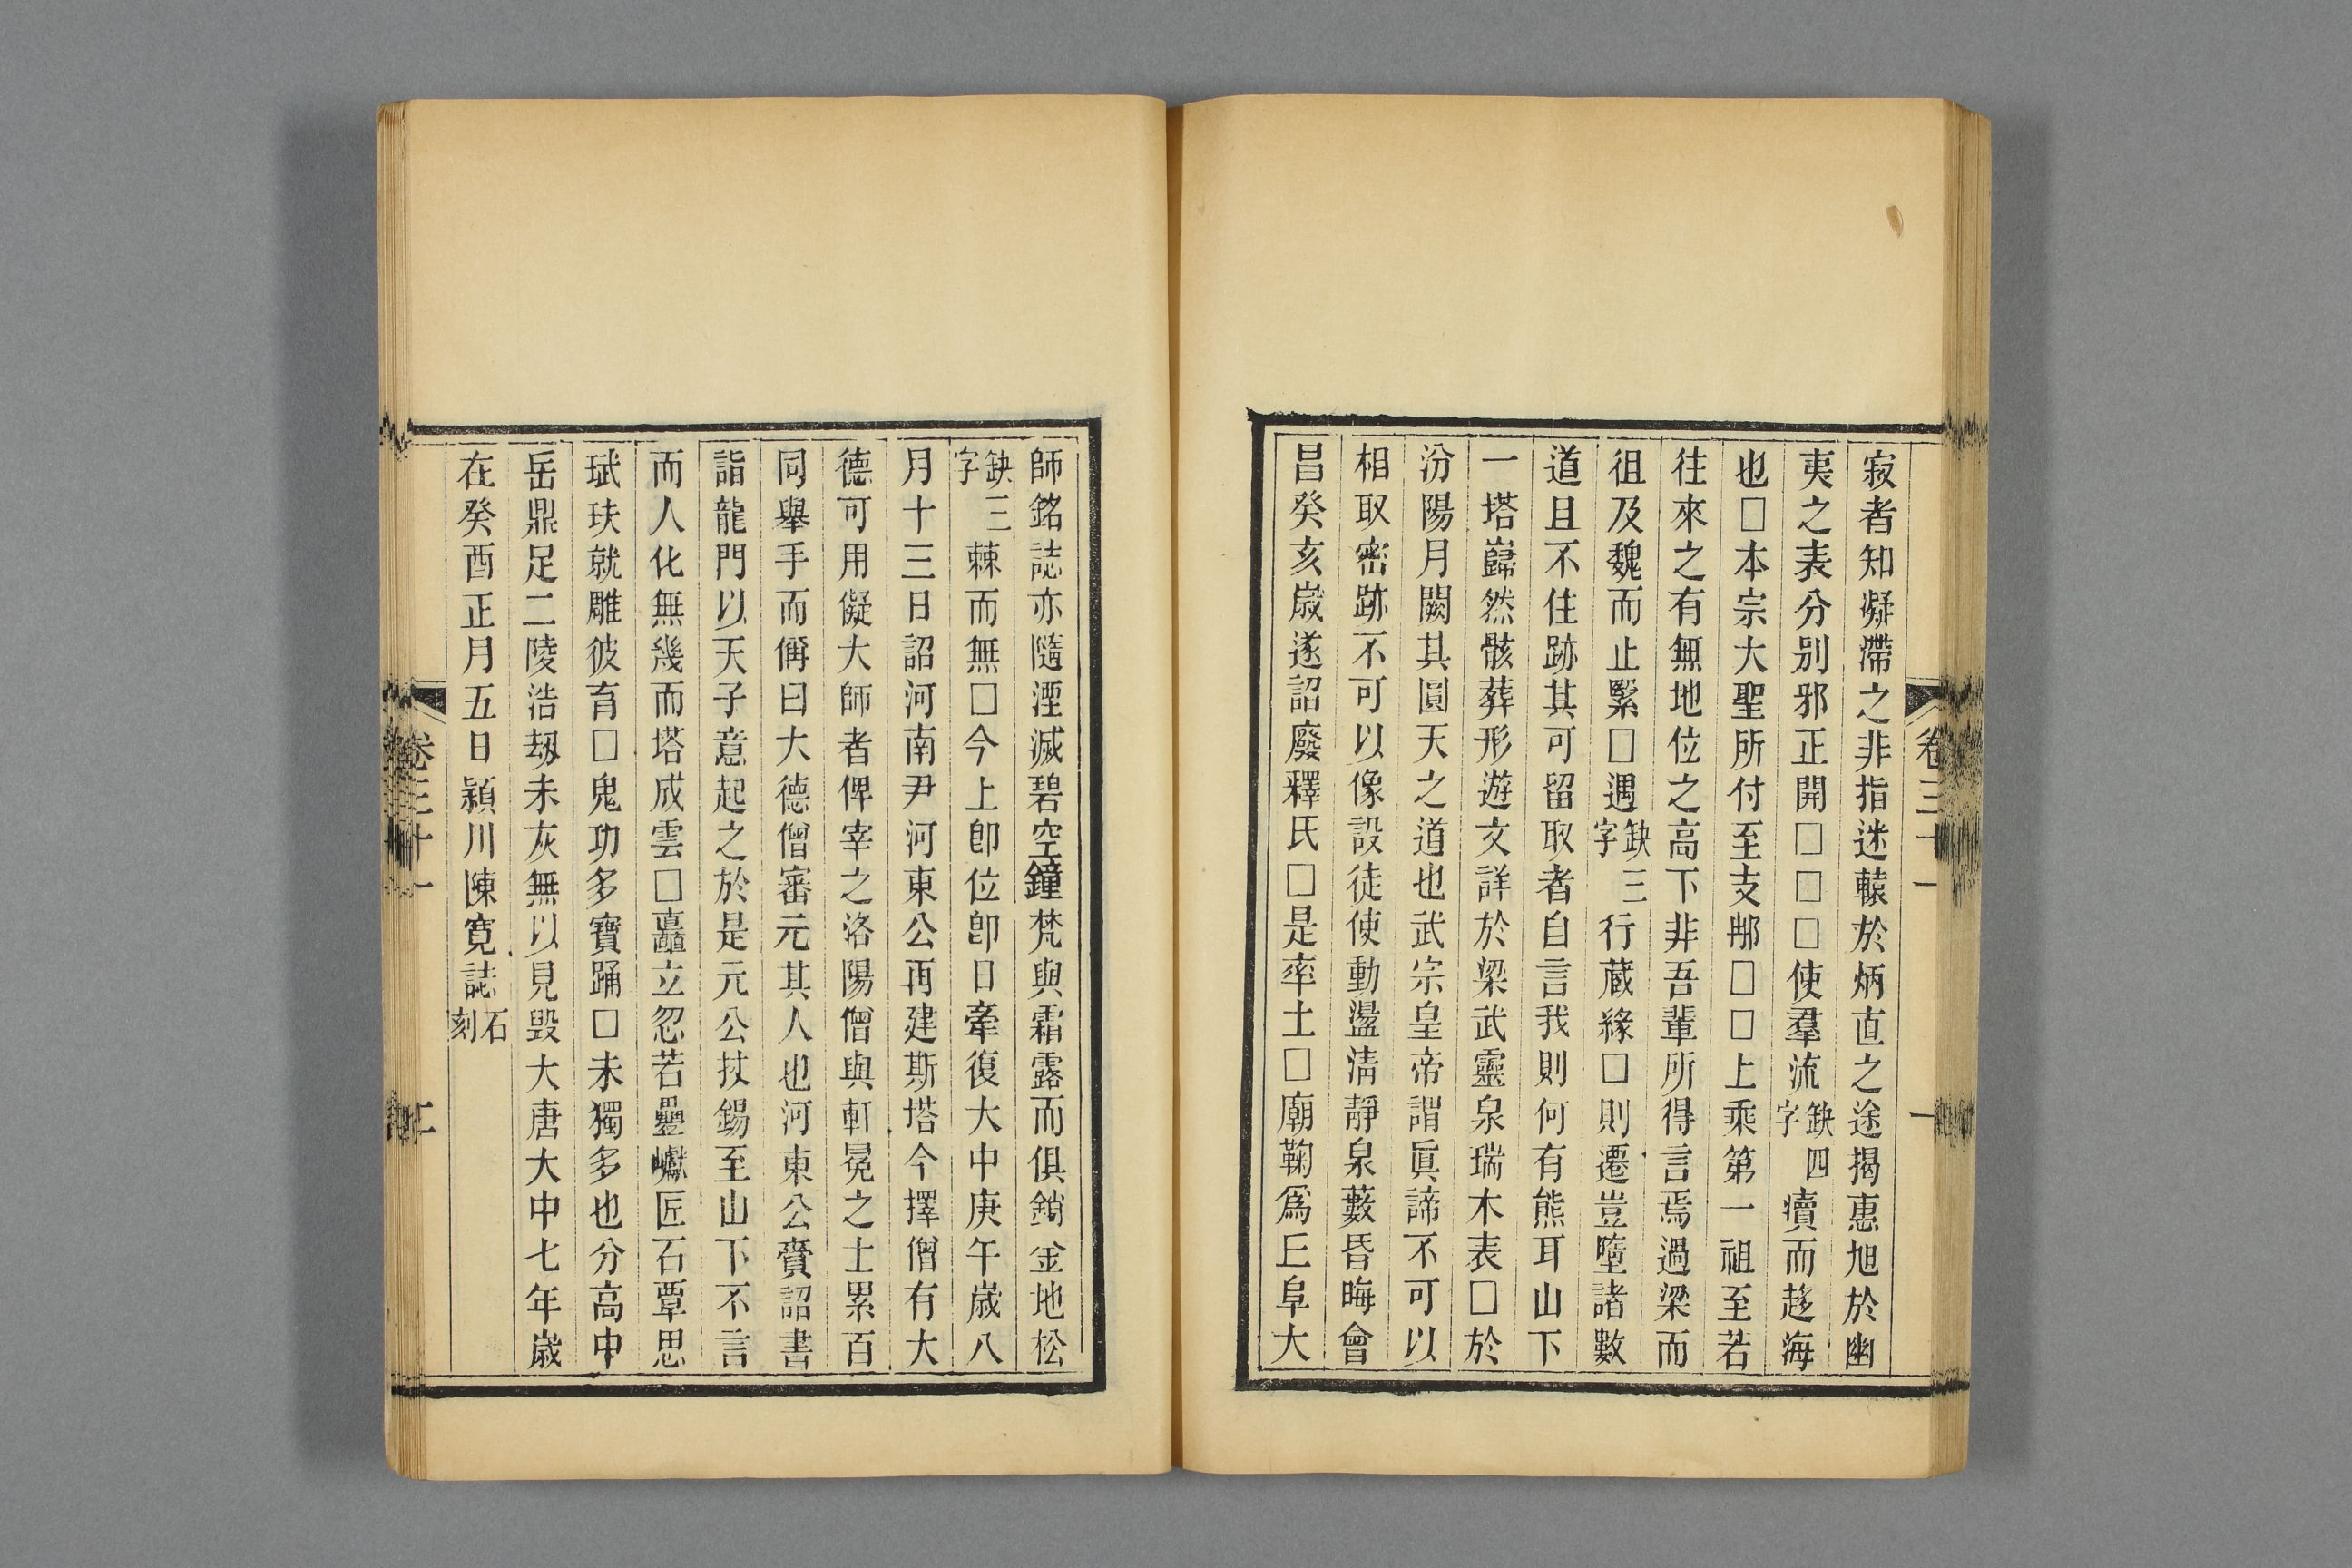 寂者知凝滯之非指迷轅於炳直之途揭惠旭於幽
夷之表分別邪正開□□□使羣流缺四字瀆而趍海
也□本宗大聖所付至支郍□□上乘第一祖至若
往來之有無地位之高下非吾輩所得言焉過梁而
徂及魏而止緊□遇缺三字行蔵緣□則遷豈墮諸數
道且不住跡其可留取者自言我則何有熊耳山下
一塔巋然骸葬形遊文詳於梁武靈泉瑞木表□於
汾陽月闕其圓天之道也武宗皇帝謂眞諦不可以
相取密跡不可以像設徒使動盪淸靜泉藪昏晦會
昌癸亥嵗遂詔廢釋氏□是率土□廟鞠爲丘阜大
卷三十一
師銘誌亦隨湮滅碧空鐘梵與霜露而俱銷金地松
缺三字棘而無□今上卽位卽日牽復大中庚午嵗八
月十三日詔河南尹河東公再建斯塔今擇僧有大
德可用儗大師者俾宰之洛陽僧與軒冕之士累百
同舉手而偁曰大德僧審元其人也河東公賫詔書
詣龍門以天子意起之於是元公扙錫至山下不言
而人化無幾而塔成雲□矗立忽若疊巘匠石覃思
珷玞就雕彼育□鬼功多寶踊□未獨多也分高中
岳鼎足二陵浩刼未灰無以見毀大唐大中七年嵗
在癸酉正月五日潁川陳寬誌石刻
卷三十一